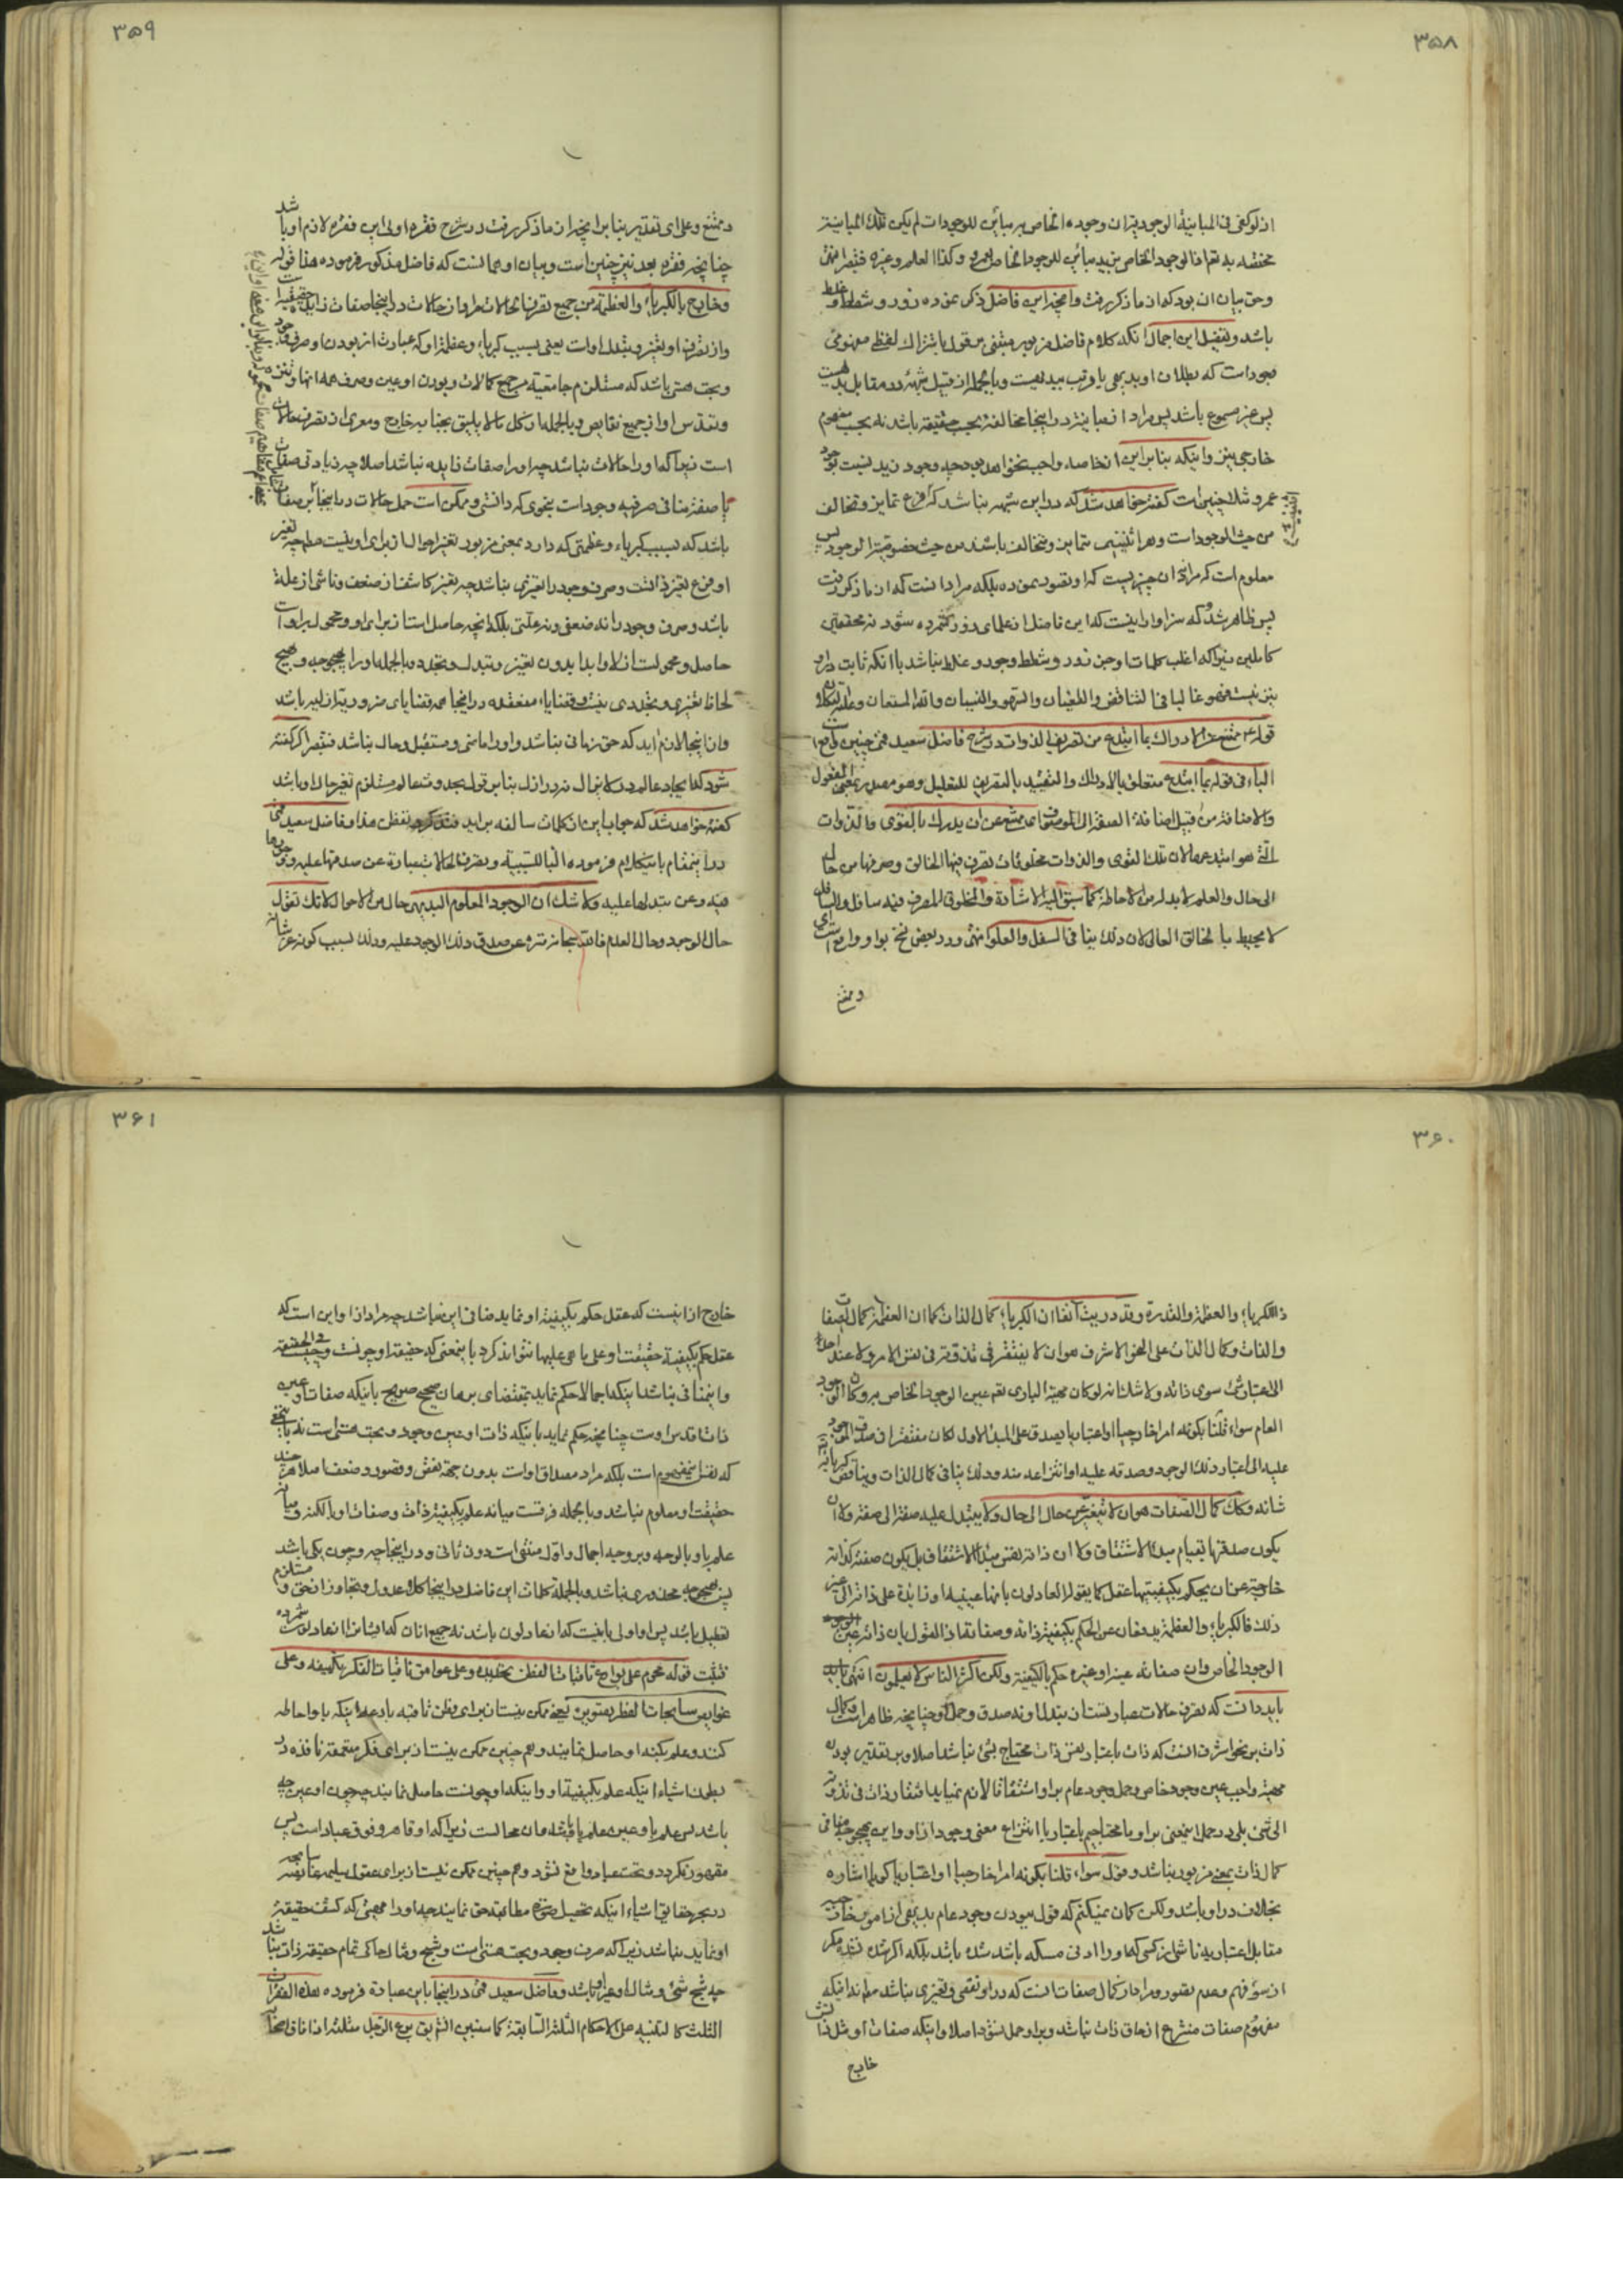 ۳۵۸
اذ لو کفی فی المباینة الوجود بان وجوده الخاص مباین للوجودات لم یکن تلک المباینة
مختصه به تعالی اذ الوجود الخاص بزید مباین للوجود الخاص بعمرو و کذا العلم و غیره فتبصر انتهی
وحق بیان ان بود که از ما ذکر رفت وآنچه این فاضل ذکر نموده زور و شطط و غلط
باشد و تفصیل این اجمال آنکه کلام فاضل مزبور مبتنی بر قول باشتراک لفظی مفهومی
وجود است که بطلان او بدیهی یا قریب ببدیهیست و بالجمله از قبیل شبهه در مقابل بدیهیست
پس غیر مسموع باشد پس مراد از مباینة در اینجا مخالفة بحسب حقیقة باشد نه بحسب مفهوم
خارجی نیز و اینکه بنابراین اختصاصه واجب نخواهد بود چه وجود زید نسبت بوجود
عمرو مثلا چنین است گفته خواهد شد که در این شبهه نباشد که فرع تمایز و تخالف
من حیث الوجود است و هر اثنینی متمایز و متخالف باشند من حیث خصوصیة الوجود پس
معلوم است که مراد ان چیز نیست که او تصور نموده بلکه مراد انست که از ما ذکر رفت
پس ظاهر شد که سزاوار اینست که این فاضل از علمای زور شمرده شود نه محققین
کاملین زیرا که اغلب کلمات او جز زور و شطط و جود و غلط نباشد با آنکه ثابت در او
نیز نیست فهو غالبا فی التناقض و الطغیان و السهو و النسیان و الله المستعان و علیه التکلان
قوله ع ممتنع عن الادراک بما ابتدع من تصریف الذوات در شرح فاضل سعید قمی چنین واقع است
الباء فی قوله بما ابتدع متعلق بالادراک و التقیید بالتصریف للتعلیل و هو مصدر بمعنی المفعول
و الاضافة من قبیل اضافة الصفة الی الموصوف ای ممتنع عن ان یدرک بالقوی و الذوات
التی هو ابتدعها لان تلک القوی و الذوات مخلوقات تصرف فیها الخالق و صرفها من حال
الی حال و العلم لابد له من الاحاطة کما سبق الیه الاشارة و المخلوق المصرف فیه سافل و السافل
لا یحیط بالخالق العالی لان ذلک ینافی السفل و العلو انتهی و در بعض نسخ بواو واقع است ای
و ممتنع
۳۵۹
و ممتنع و علی ای تقدیر بنا بر آنچه از ما ذکر رفت در شرح فقره اولی این فقره لازم او باشد
چنانچه فقره بعد نیز چنین است و بیان او همانست که فاضل مذکور فرموده هذا قوله
و خارج بالکبریاء و العظمة من جمیع تصرف الحالات مراد از حالات در اینجا صفات زایده حقیقیه است
و از تصرف او تغیر و تبدل اوست یعنی بسبب کبریاء و عظمة او که عبارت از بودن او صرف وجود
و بحت هستی باشد که مستلزم جامعیة جمیع کمالات و بودن او عین و صرف همه انها و تنزه
و تقدس او از جمیع نقایص و بالجمله از کل ما لا یلیق بجنابه خارج و معری از تصرف حالات
است زیرا که او را حالات نباشد چه او را صفات زایده نباشد اصلا چه زیادتی صفات
با صفة منافی صرفیه وجود است بنحوی که دانستی و ممکن است حمل حالات در اینجا بر صفات
باشد که بسبب کبریاء و عظمتی که دارد بمعنی مزبور تغیر احوال از برای او نیست اصلا چه تغیر
او فرع تغیر ذاتست و صرف وجود را تغیری نباشد چه تغیر کاشف از ضعف و ناشی از علة
باشد و صرف وجود را نه ضعفی و نه علتی بلکه آنچه حاصل است از برای او و محمول بر او است
حاصل و محمولست ازلا و ابدا بدون تغیر و تبدل و تجدد و بالجمله او را بهیچ وجه و هیچ
لحاظ تغیری و تجددی نیست و قضایاء منعقده در اینجا همه قضایای ضروریه ازلیه باشد
و از اینجا لازم اید که حق زمانی نباشد و او را ماضی و مستقبل و حال نباشد فتبصر اگر گفته
شود که ایجاد عالم در لایزال نه در ازل بنابر قول بحدوث عالم مستلزم تغیر حال او باشد
گفته خواهد شد که جواب این از کلمات سالفه براید فتذکر و تفطن هذا و فاضل سعید قمی
در این مقام باین کلام فرموده الباء للسببیة و تصرف الحالات عبارة عن صدقها علیه و وجودها
فیه و عن تبدلها علیه و لا شک ان الوجود المعلوم البدیهی حال من الاحوال لانک تقول
حال الوجود و حال العدم فالله سبحانه منزه عن صدق ذلک الوجود علیه و ذلک بسبب کونه عز شانه
۳۶۰
ذا الکبریاء و العظمة و القدرة و قد دریت آنفا ان الکبریاء کمال الذات کما ان العظمة کمال الصفات
و الذات و کمال الذات علی النحو الاشرف هو ان لا یفتقر فی تذوته فی نفس الامر و لا عند احد
الی اعتبار شیء سوی ذاته و لا شک انه لو کان مهیة الباری تعم عین الوجود الخاص به و کان الوجود
العام سواء قلنا بکونه امرا خارجیا او اعتباریا یصدق علی المبدأ الاول لکان مفتقرا فی صدق الموجود
علیه الی اعتبار ذلک الوجود و صدقه علیه او انتزاعه منه و ذلک ینافی کمال الذات و یناقض کبریائه
شانه و کک کمال الصفات هو ان لا تتغیر من حال الی حال و لا یتبدل علیه صفة الی صفة و لا ان
یکون صدقها بقیام مبدأ الاشتقاق و لا ان ذاته نفس مبدأ الاشتقاق بل یکون صفته کذاته
خارجة عن ان یحکم بکیفیتها عقل کما یقوله العادلون بانها عینیه او زایدة علی ذاته الی غیر
ذلک فالکبریاء و العظمة یدفعان عن الحکم بکیفیة ذاته و صفاته فاذا القول بان ذاته عین الوجود
الوجود الخاص و ان صفاته عینه او غیره حکم بالکیفیة و لکن اکثر الناس لا یعلمون انتهی
باید دانست که تصرف حالات عبارتست از تبدل او نه صدق و حمل او چنانچه ظاهر است و کمال
ذات بر نحو اشرف انست که ذات باعتبار نفس ذات محتاج بشیء نباشد اصلا و بر تقدیر بودن
مهیة واجب عین وجود خاص و حمل وجود عام بر او اشتقاقا لازم نمیاید افتقار ذات فی تذوته
الی شیء بلی در حمل اینمعنی بر او یا محتاجیم باعتبار یا انتزاع معنی وجود از او و این بهیچ وجه منافی
کمال ذات بمعنی مزبور نباشد و قول سواء قلنا بکونه امرا خارجیا او اعتباریا کویا اشاره
بخلاف در او باشد و لکن کمان نمیکنم که قول ببودن وجود عام بدیهی از امور خارجیه
مقابل اعتباریه ناشی از کسی که او را ادنی مسکه باشد شده باشد بلکه اگر شده فتدبر مکر
از سوء فهم و عدم تصور و مراد از کمال صفات انست که در او نقصی و تغیری نباشد نه اینکه
مفهوم صفات منتزع از حاق ذات نباشد و بر او حمل نشود اصلا و اینکه صفات او مثل ذاتش
خارج
۳۶۱
خارج از اینست که عقل حکم بکیفیة او نماید منافی این نباشد چه مراد از او این است که
عقل حکم بکیفیة حقیقت او علی ما هی علیها نتواند کرد باینمعنی که حقیقة او چونست و چیست فی الحقیقة
و اینمنافی نباشد اینکه اجمالا حکم نماید بمقتضای برهان صحیح صریح باینکه صفات او عین
ذات اقدس اوست چنانچه حکم نماید باینکه ذات او عین وجود و بحت هستی است نه باینمعنی
که نفس مفهوم است بلکه مراد مصداق اوست بدون جهة نقض و قصور و ضعف اصلا هر چند
حقیقت او معلوم نباشد و بالجمله فرقست میانه علم بکیفیة ذات و صفات او بالکنه و میانه
علم باو بالوجه و بر وجه اجمال و اول منتفی است دون ثانی و در اینجا چه و چون یکی باشد
پس بهیچ وجه محذوری نباشد و بالجملة کلمات این فاضل در اینجا کلام عدول و تجاوز از حق و مستلزم
تعطیل باشد پس او اولی باینست که از عادلون باشد نه جمیع انان که ایشانرا از عادلون شمرده
فتثبت قوله محرم علی بوارع ثاقبات الفطن تحدیده و علی عوامق ثاقبات الفکر تکییفه و علی
غوایص سابحات الفطر تصویره یعنی ممکن نیست از برای فطن ثاقبه بارعه اینکه باو احاطه
کنند و علم بکنه او حاصل نمایند و هم چنین ممکن نیست از برای فکر متعمقة نافذه در
بطون اشیاء اینکه علم بکیفیة او و اینکه او چونست حاصل نمایند چه چون او عین چه
باشد پس علم باو عین علم باو باشد و ان محالست زیرا که او قاهر و فوق عباد است پس
مقهور نکردد و تحت عباد واقع نشود و هم چنین ممکن نیست از برای عقول سلیمه غایصه سابحه
در بحر حقایق اشیاء اینکه تحصیل صورة مطابقه حق نمایند چه او را مهیتی که کشف حقیقة
او نماید نباشد زیرا که صرف وجود و بحت هستی است و شبح و مثال حاکی تمام حقیقة ذات نباشد
چه شبح شیء و مثال او غیر او باشد و فاضل سعید قمی در اینجا باین عبارة فرموده هذه الفقرات
الثلث کالنتیجه من الاحکام الثلثة السابقة کما سنبین انشاء الله یق برع الرجل مثلثة اذا فاق اصحابه